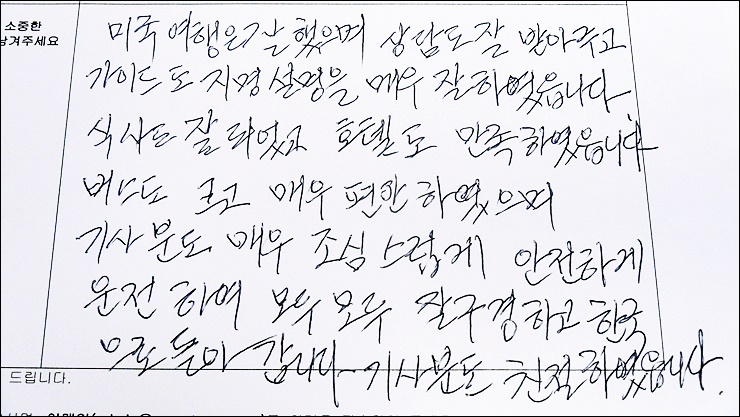 소중한
남겨주세요
미국 여행은 잘 했으며 상담도 잘 받아주고
가이드도 지명 설명을 매우 잘 하였읍니다.
식사도 잘 되었고 호텔도 만족하였읍니다
버스도 크고 매우 편안하였으며
기사분도 매우 조심스럽게 안전하게
운전하여 모두모두 잘 구경하고 한국
으로 돌아 갑니다. 기사분도 친절하였읍니다.
드립니다.